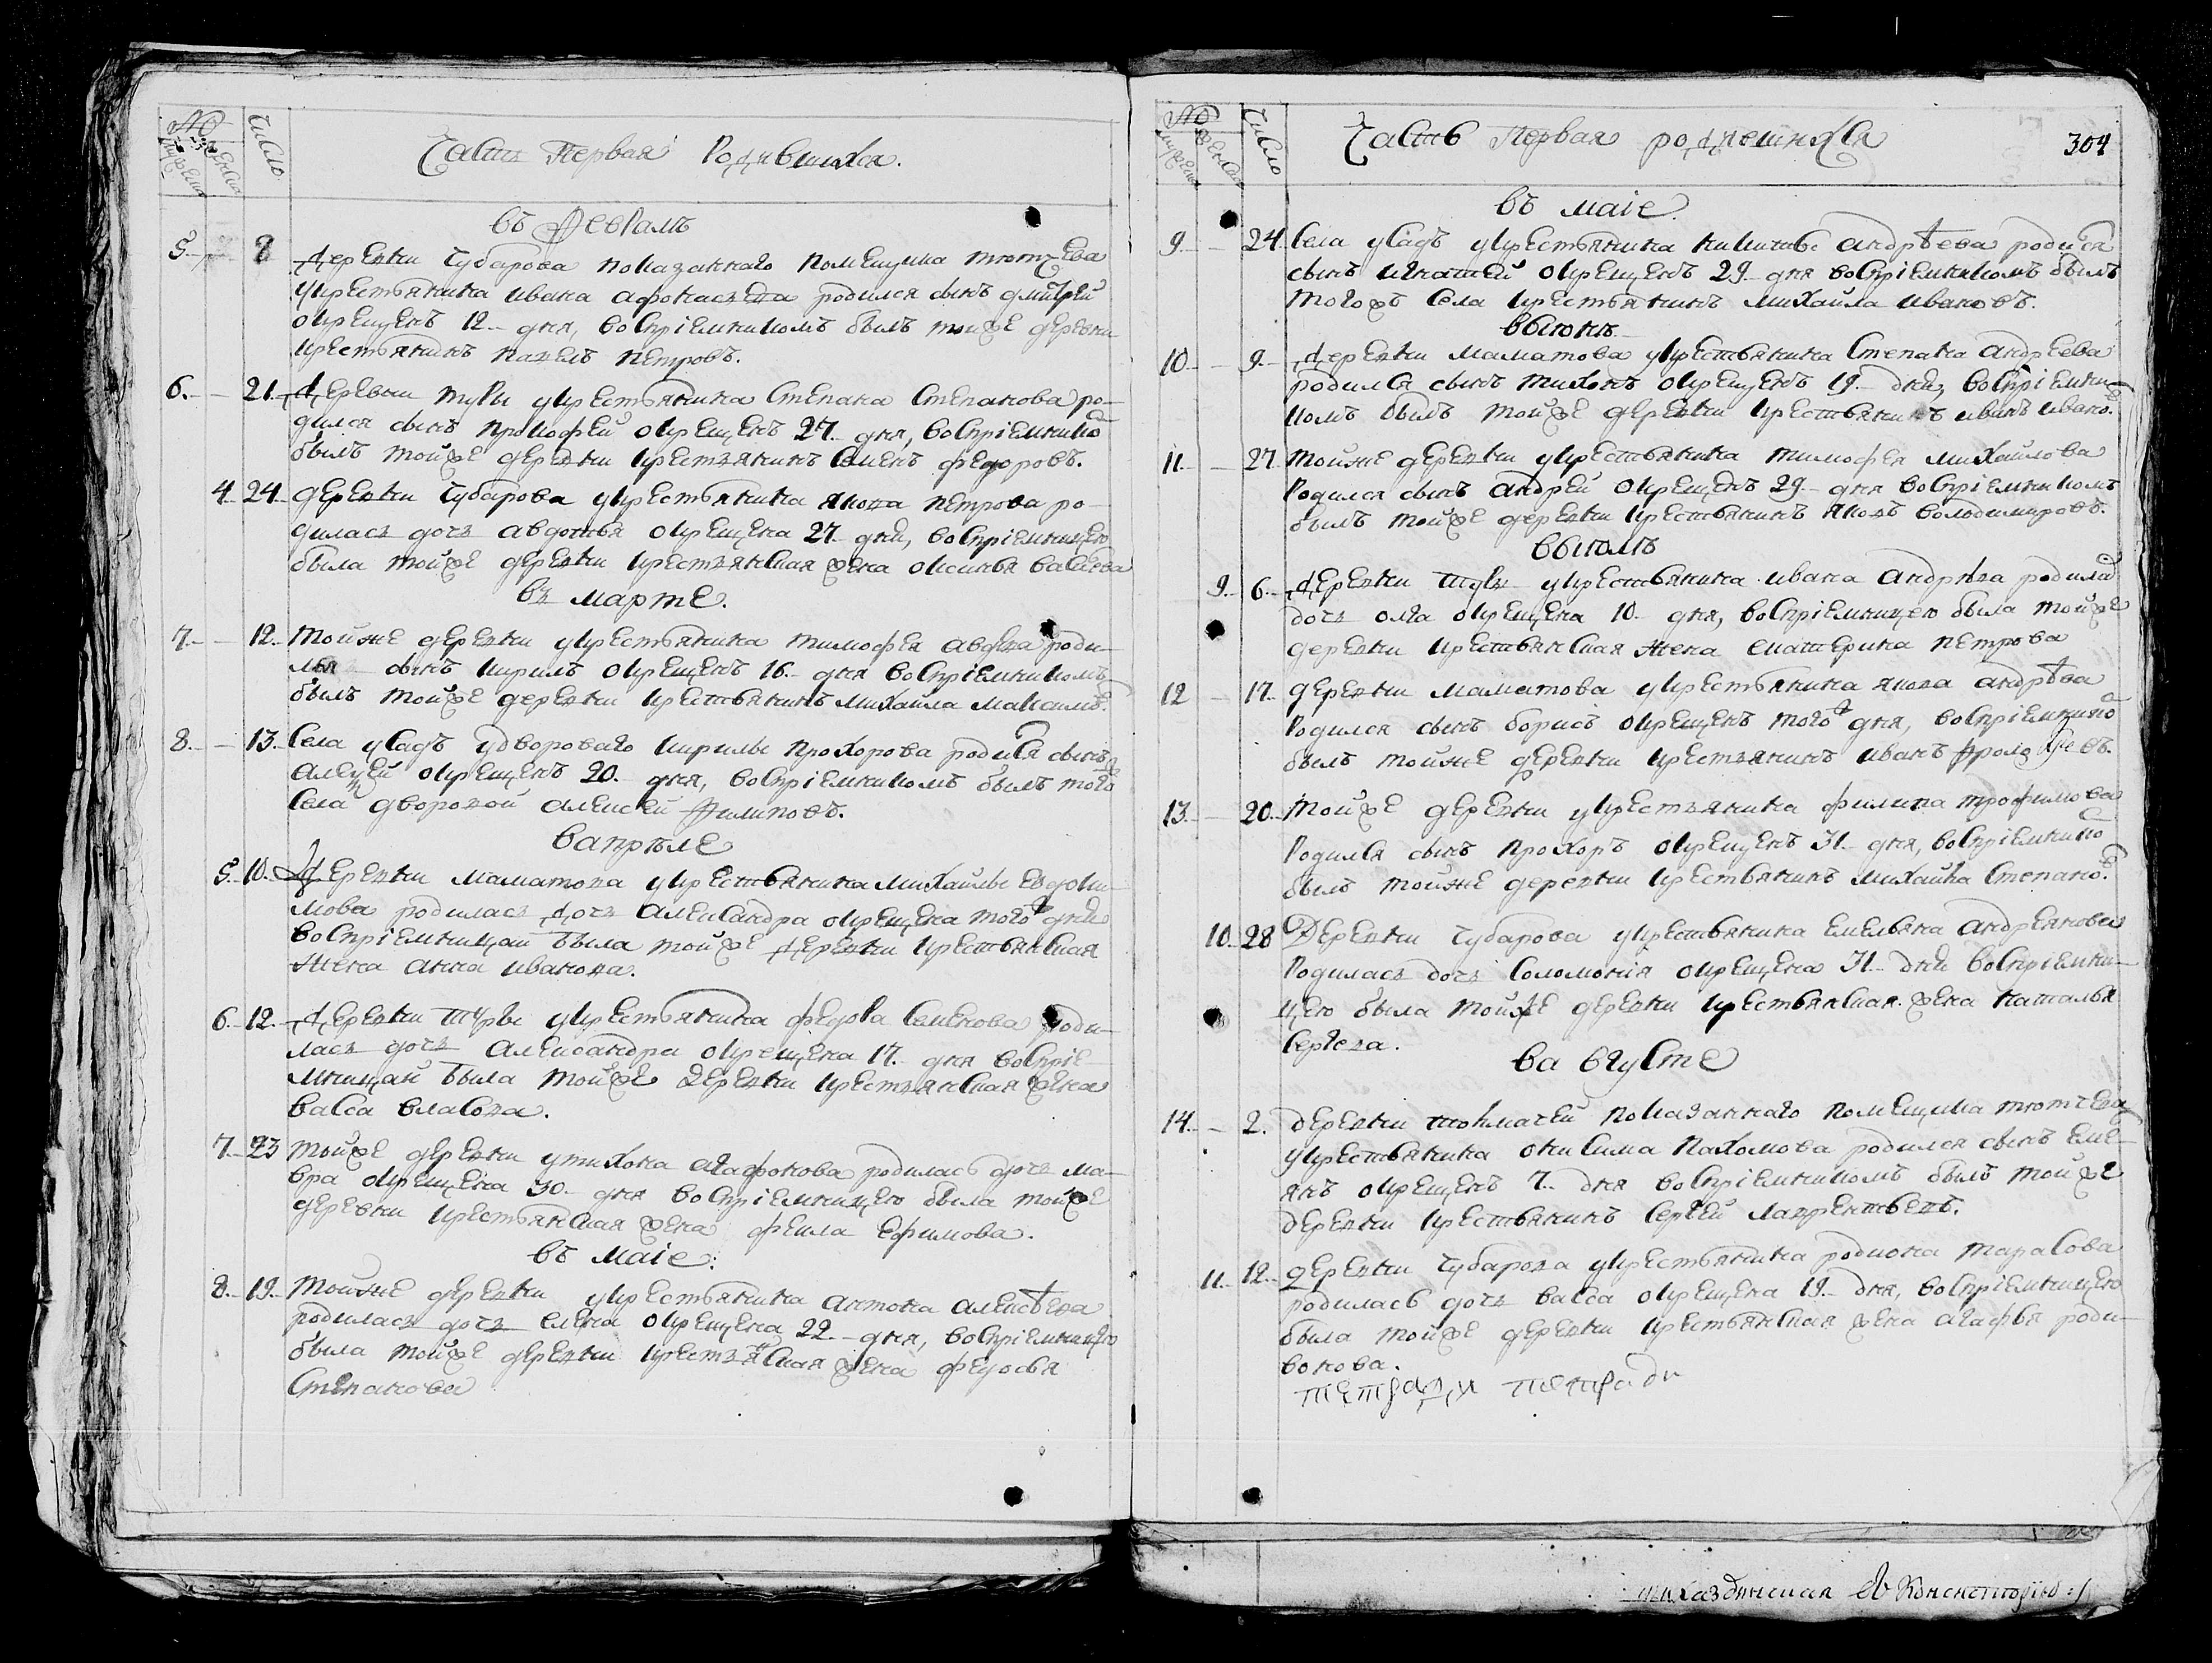 №
мужеска
женска
число
Часть Первая Родившихся.
въ Февралѣ
5. 8 Деревни Чубарова показаннаго помещика тютчева
укрестьянина ивана афонасьева родился сынъ дмитрей
окрещенъ 12 дня, воспріемникомъ былъ тойже деревни
крестьянинъ павелъ петровъ.
6. 21. Деревни туры укрестьянина степана степанова ро-
дился сынъ прокофей окрещенъ 27 дня, воспріемнико
былъ тойже деревни крестьянинъ семенъ федоровъ.
4 24 деревни чубарова укрестьянина якова петрова ро-
дилась дочь авдотья окрещена 27 дня, воспріемницею
была тойже деревни крестьянская жена оксинья васиева
въ мартѣ.
7. 12 тойже деревни укрестьянина тимофея авдева роди-
лья сынъ кирилъ окрещенъ 16 дня воспріемникомъ
былъ тойже деревни крестьянинъ михаила максимъ.
8. 13. Села усадъ удвороваго кирилы прохорова родися сынъ
алеѯей окрещенъ 20. дня, воспріемникомъ былъ того
села дворовой алексей филиповъ.
вапрѣле
5. 10. Деревни маматова укрестьянина михайлы евдоки-
мова родилась дочь александра окрещена того ж дня
воспріемницаи была тойже деревни крестьянская
жена анна иванова.
6 12. Деревни туры укрестьянина федора семенова роди-
лась дочь александра окрещена 17 дня воспріе-
мницаи была тойже деревни крестьянская жена
васса власова.
7 23 тойже деревни утихона агафонова родилась дочь ма-
вра окрещена 30 дня воспріемницею была тойже
деревни крестьянская жена фекла ефимова.
въ маіе:
8. 19. тойже деревни укрестьянина антона алексѣева
родилась дочь елена окрещена 22 дня, воспріемницею
была тойже деревни крестьянская жена федосья
степанова
№
мужеска
женска
число
Часть Первая родившихся
304
въ маіе
9 24 Села усадъ укрестьянина никиты андрѣева родися
сынъ игнатей окрещенъ 29 дня воспріемникомъ былъ
тогожъ села крестьянинъ михаила ивановъ.
въ июнѣ
10 9. Деревни маматова укрестьянина степана андреева
родился сынъ тихонъ окрещенъ 19. дня, воспріемни-
комъ былъ тойже деревни крестьянинъ иванъ ивано.в
11. 27 тойже деревни укрестьянина тимофея михайлова
родился сынъ андрей окрещенъ 29 дня воспріемникомъ
былъ тойже деревни крестьянинъ яковъ волъдимировъ.
въ июлѣ
9. 6. Деревни туры укрестьянина ивана андрѣва родила
дочь олга окрещена 10 дня, воспріемницею была тойже
деревни крестьянская жена екатерина петрова
12 17. деревни маматова укрестьянина якова андрѣва
родился сынъ борисъ окрещенъ того ж дня, воспріемнико
былъ тойже деревни крестьянинъ иванъ фроловъ.
13. 20. тойже деревни укрестьянина филипа трофимова
родился сынъ прохоръ окрещенъ 31 дня, воспріемнико
былъ тойже деревни крестьянинъ михайла степано.в
10. 28 Деревни чубарова укрестьянина емельяна андреянова
родилась дочь соломонія окрещена 31 дня воспріемни-
цею была тойже деревни крестьянская жена наталья
сергева.
ва вгусте
14. 2. деревни токмачей показаннаго помещика тютчева
укрестьянина онисима пахомова родился сынъ еме-
янъ окрещенъ 7. дня воспріемникомъ былъ тойже
деревни крестьянинъ сергей лаврентьевъ.
11. 12. деревни чубарова укрестьянина родиона тарасова
родилась дочь васса окрещена 19. дня, воспріемницею
была тойже деревни крестьянская жена агафья роди-
вонова.
тетради тетради